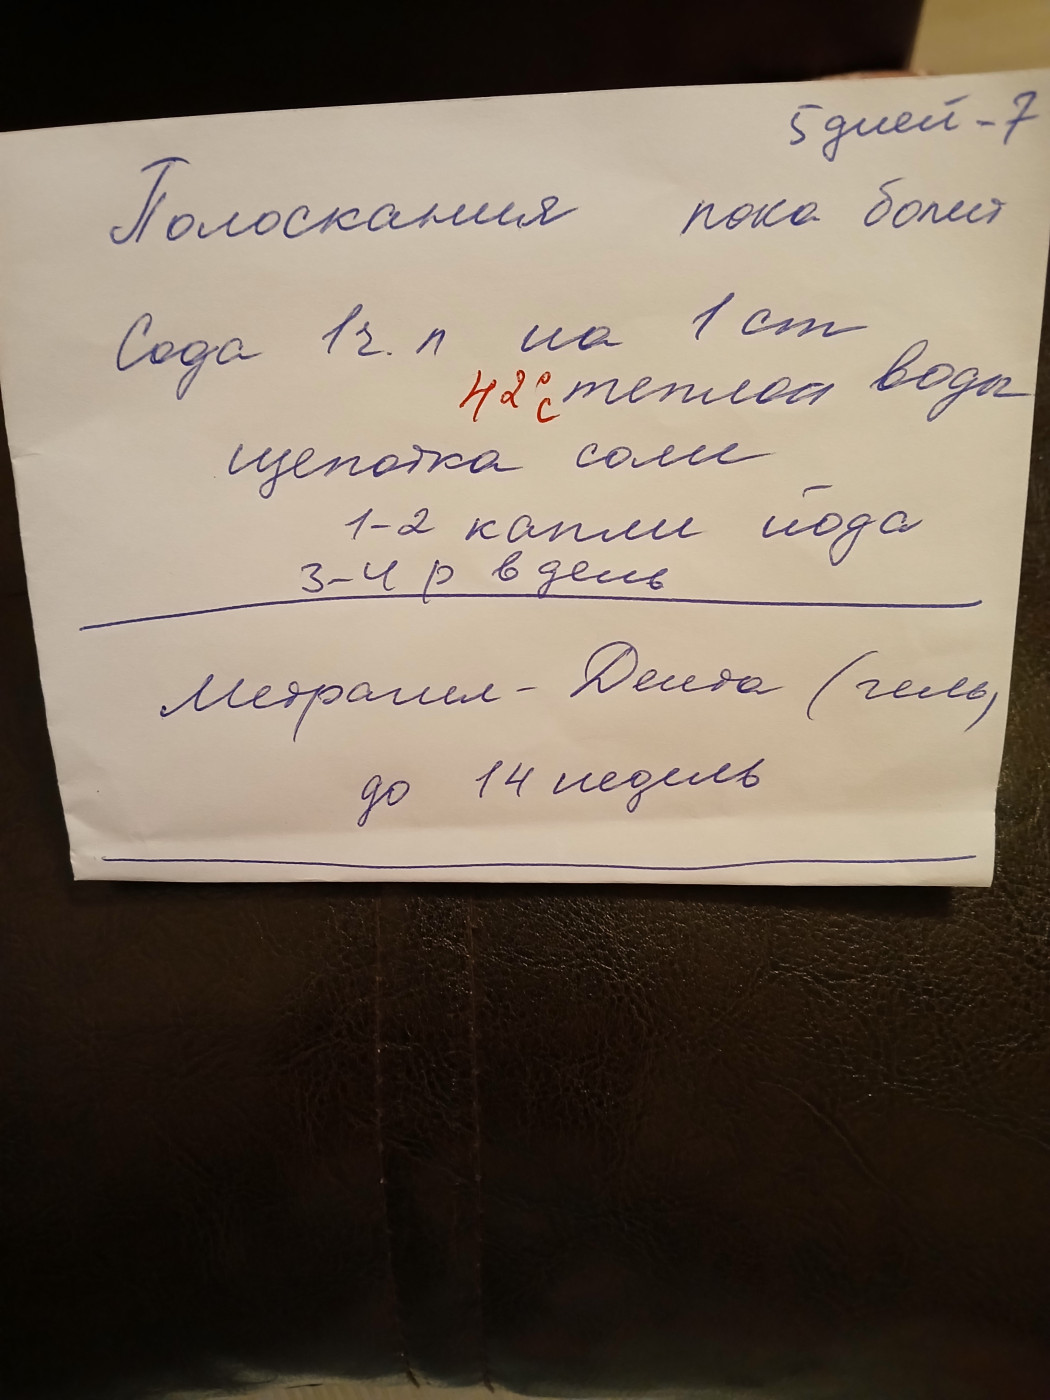 5 дней - 7
Полоскания пока болит
Сода 1 ч. л на 1 ст
42°С теплой воды
щепотка соли
1-2 капли йода
3-4 р в день
Метрагил - Дента (гель)
до 14 недель